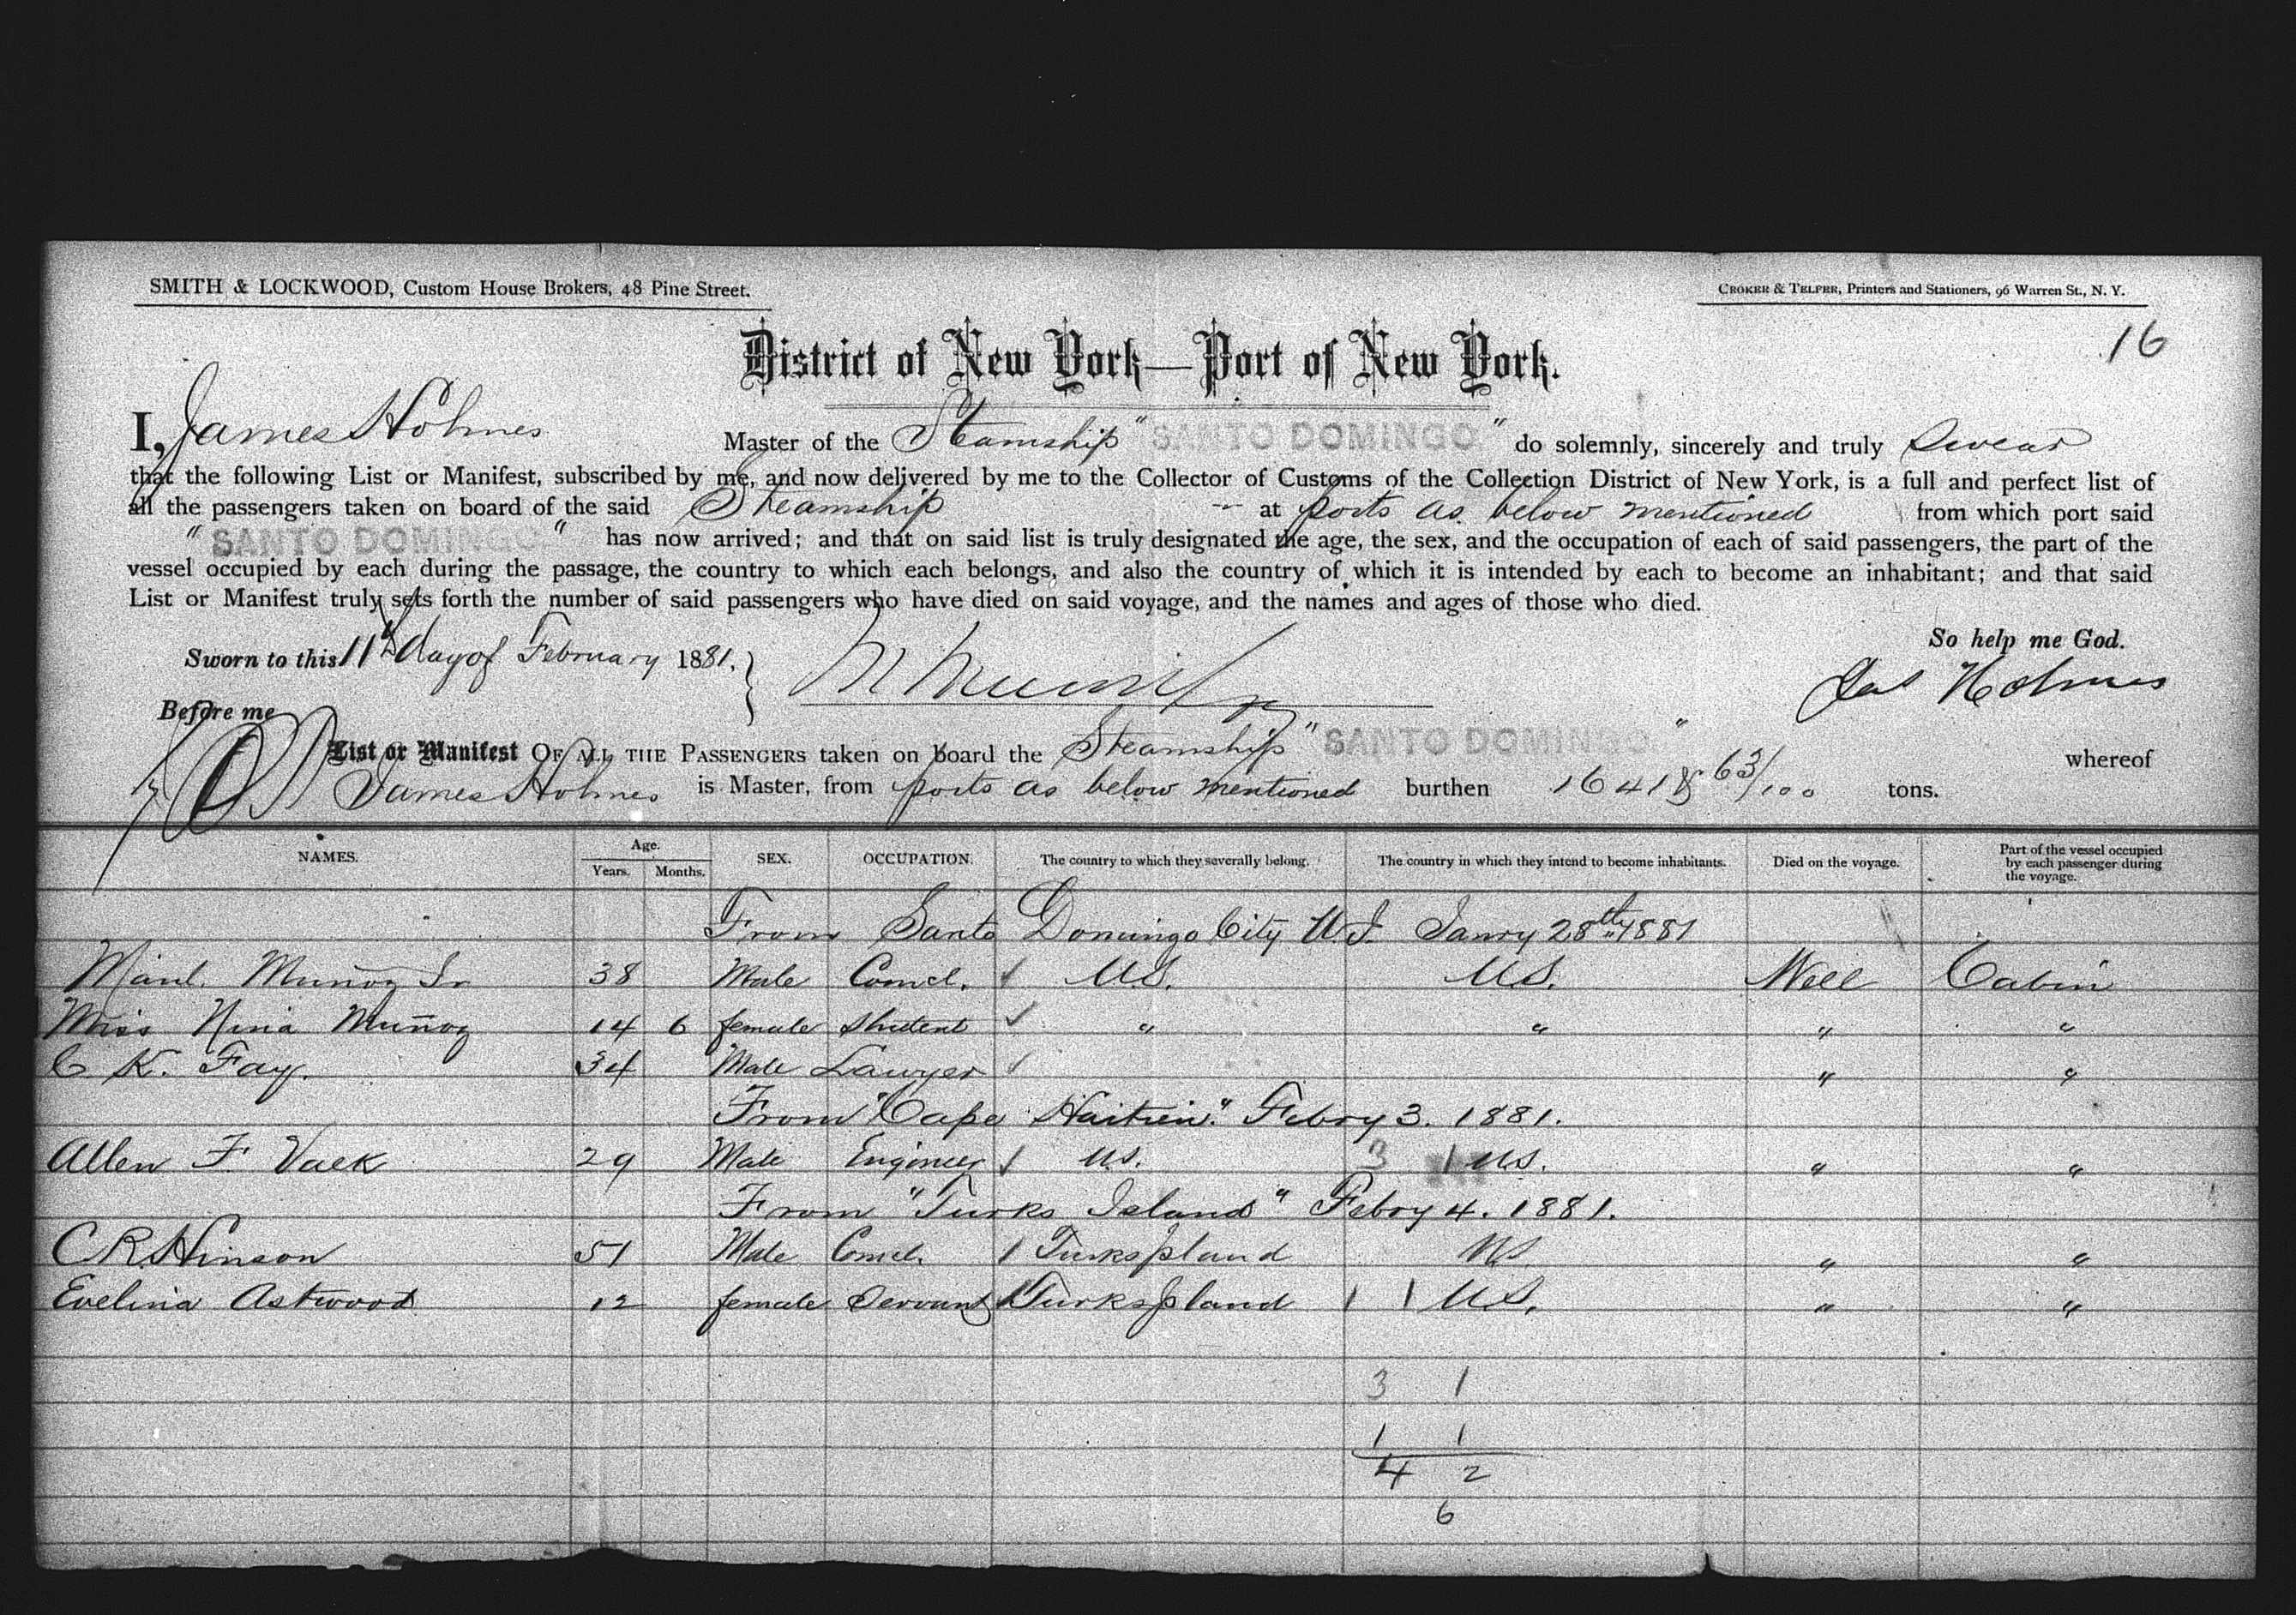 SMITH & LOCKWOOD, Custom House Brokers, 48 Pine Street.
CROKER & TELFER, Printers and Stationers, 96 Warren St., N. Y.
16
District of New York—Port of New York.
I, James Holmes Master of the Steamship "SANTO DOMINGO" do solemnly, sincerely and truly swear
that the following List or Manifest, subscribed by me, and now delivered by me to the Collector of Customs of the Collection District of New York, is a full and perfect list of
all the passengers taken on board of the said Steamship at ports as below mentioned from which port said
"SANTO DOMINGO" has now arrived; and that on said list is truly designated the age, the sex, and the occupation of each of said passengers, the part of the
vessel occupied by each during the passage, the country to which each belongs, and also the country of which it is intended by each to become an inhabitant; and that said
List or Manifest truly sets forth the number of said passengers who have died on said voyage, and the names and ages of those who died.
So help me God.
Sworn to this 11th day of February 1881.
Jas Holmes
Before me
List or Manifest OF ALL THE PASSENGERS taken on board the Steamship "SANTO DOMINGO" whereof
James Holmes is Master, from ports as below mentioned burthen 1641 & 63/100 tons.
NAMES. Age. Years. Months. SEX. OCCUPATION. The country to which they severally belong. The country in which they intend to become inhabitants. Died on the voyage. Part of the vessel occupied by each passenger during the voyage.
From Santo Domingo City W.I. Janry 28th 1881
Manl. Muñoz Jr 38 Male Comcl. U.S. U.S. Nell Cabin
Miss Nina Muñoz 14 6 female Student " " " "
C. K. Fay. 34 Male Lawyer " "
From "Cape Haitien." Febry 3. 1881.
Allen F. Vaek 29 Male Engineer U.S. 3 1 U.S. " "
From "Turks Island" Febry 4. 1881.
C R Hinson 51 Male Comcl. 1 Turks Island U.S. " "
Evelina Astwood 12 female Servant 1 Turks Island 1 1 U.S. " "
3 1
1 1
4 2
6